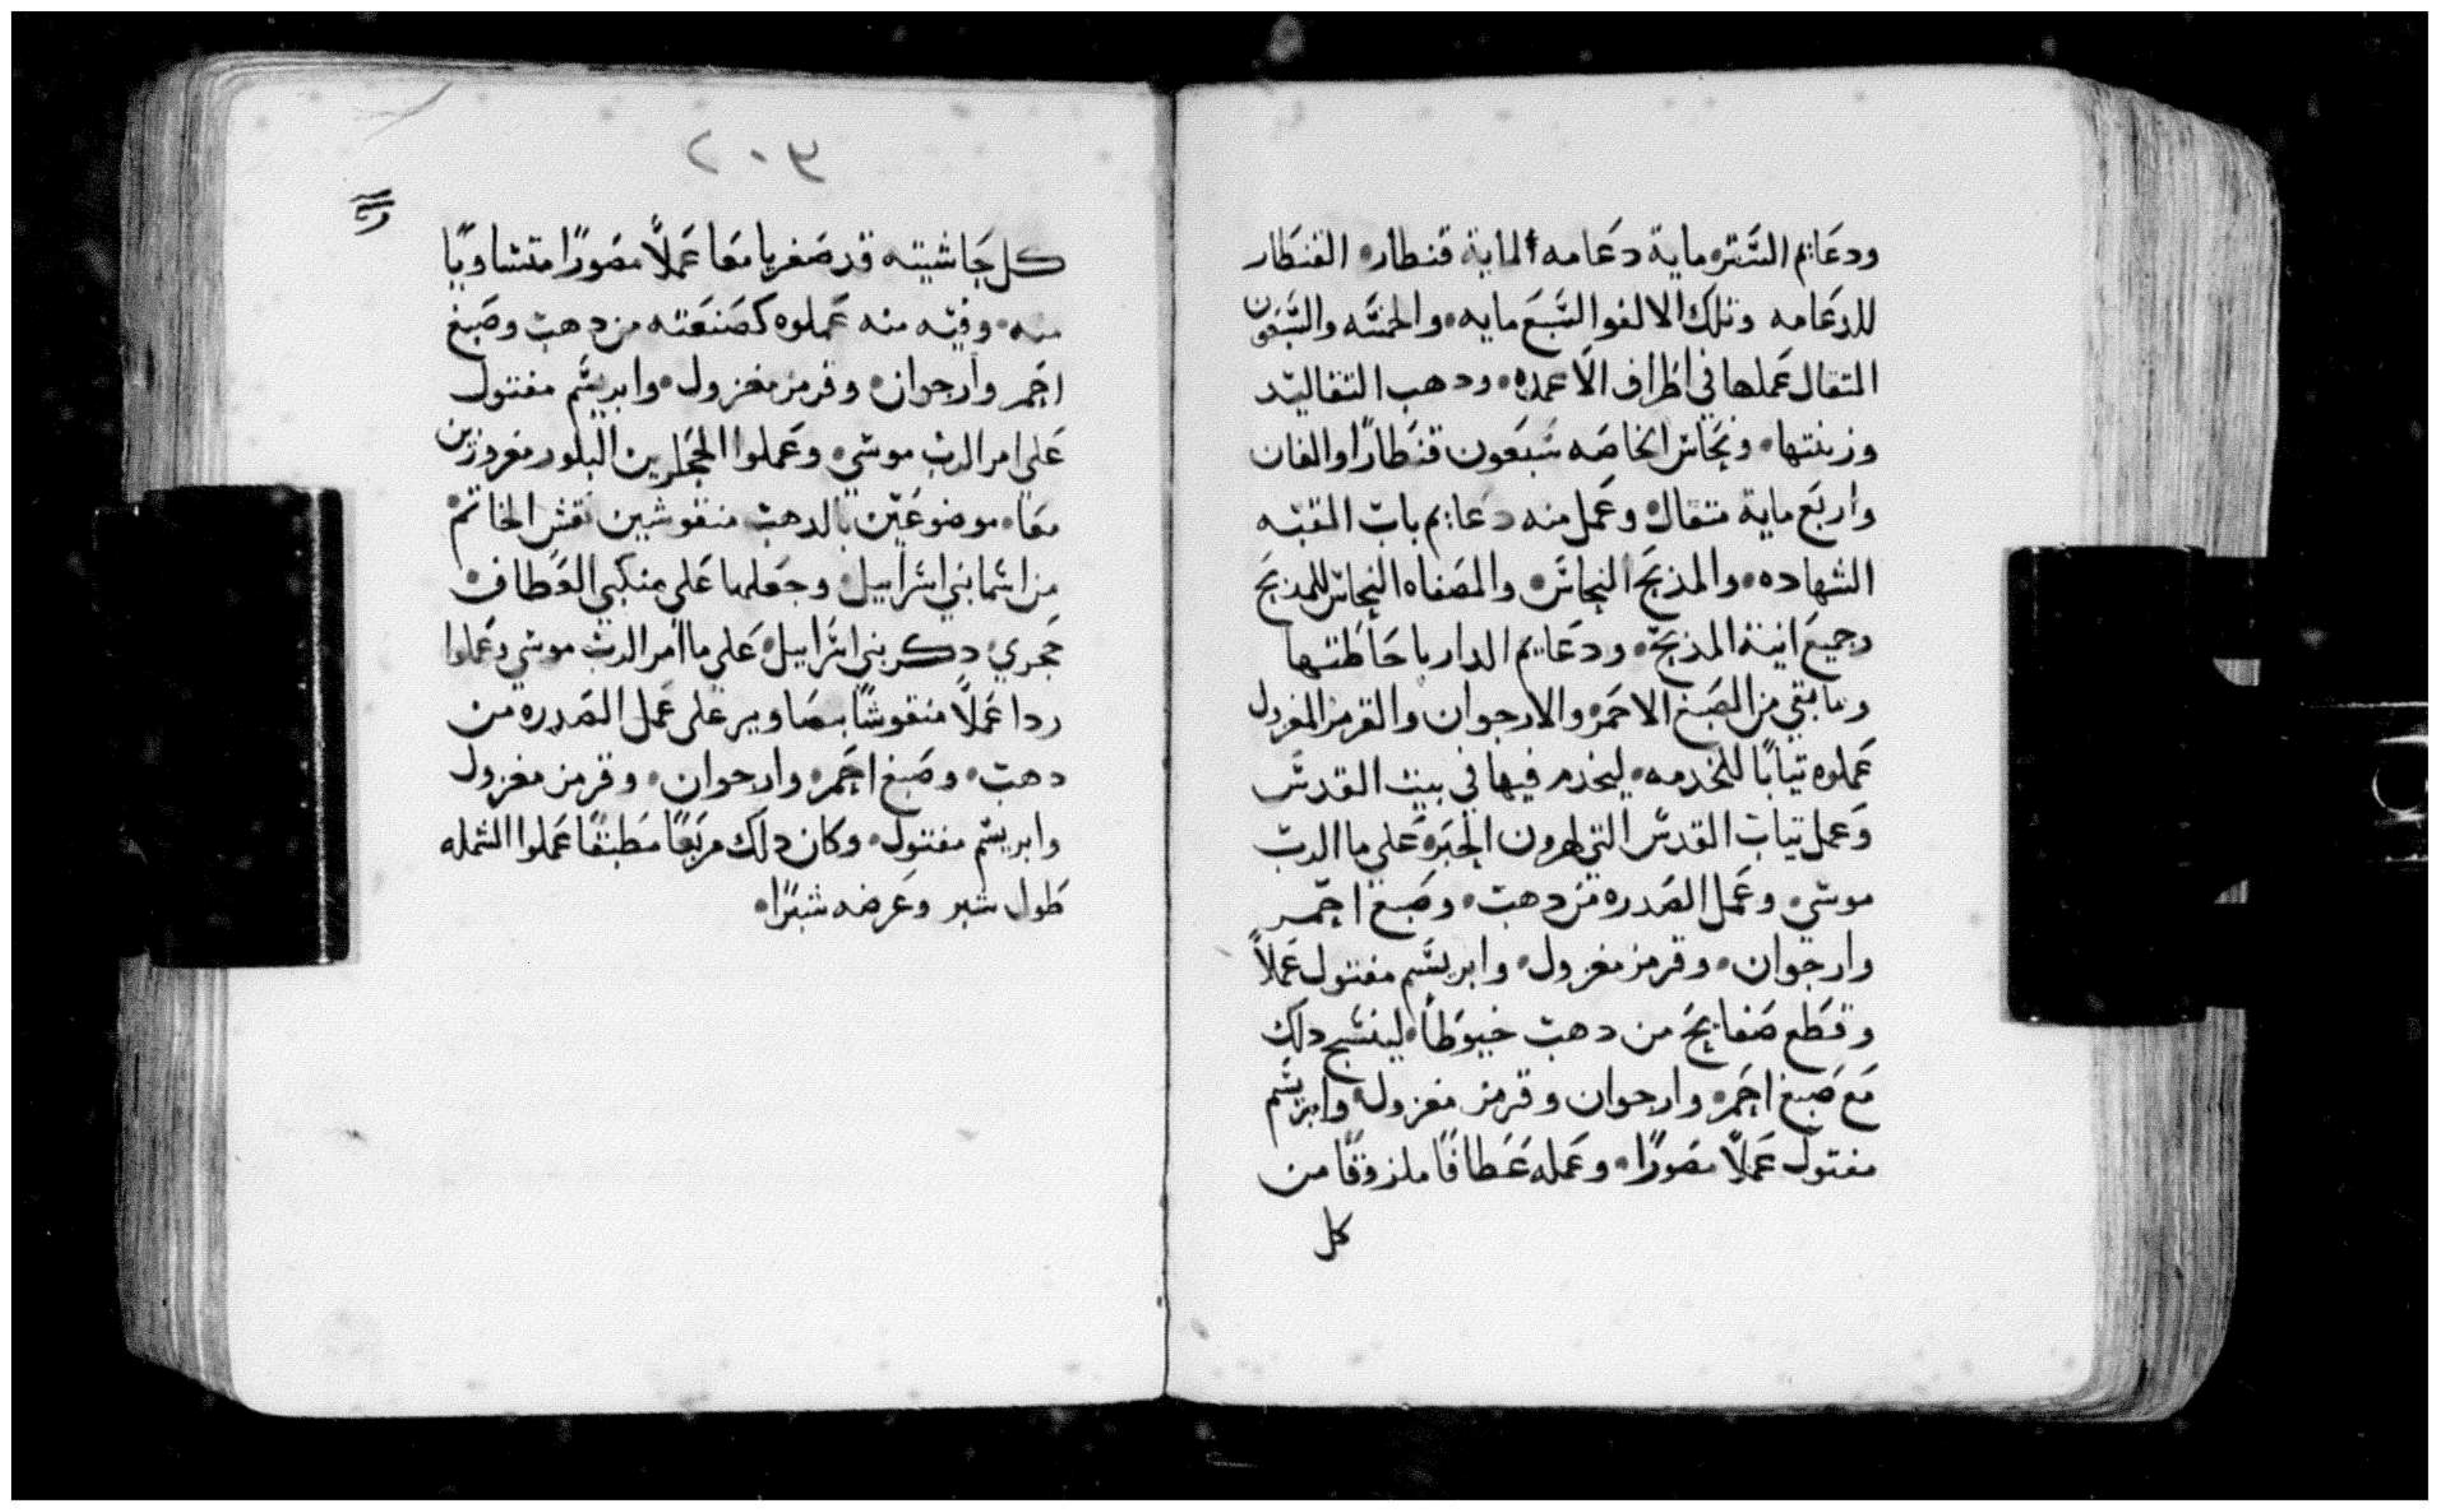 ودعايم الستر ماية دعامه الماية قنطار القنطار
للدعامه وتلك الالف والسبع مايه والخمسه والسبعون
المتقال عملها في اطراف الاعمده ودهب التقاليد
وزينتها ونحاس الخاصه سبعون قنطارًا والفان
واربع ماية متقال وعمل منه دعايم باب القبه
الشهاده والمذبح النحاس والمصفاه النحاس للمذبح
وجميع انية المذبح ودعايم الدار باحاطتها
وما بقي من الصبغ الاحمر والارجوان والقرمز المغزول
عملوه تيابًا للخدمه ليخدم فيها في بيت القدس
وعمل تياب القدس التي لهرون الحبر علي ما الرب
موسي وعمل الصدره من دهب وصبغ احمر
وارجوان وقرمز مغزول وابريسم مفتول عملاً
وقطع صفايح من دهب خيوطًا لينسج دلك
مع صبغ احمر وارجوان وقرمز مغزول وابريسم
مفتول عملاً مصورًا وعمله عطافًا ملزوقًا من
كل
٢٠٣
كل حاشيته قد صفر يا معا عملاً مصورًا متساويًا
منه وفيه منه عملوه كصنعته من دهب وصبغ
احمر وارجوان وقرمز مغزول وابريسم مفتول
علي امر الرب موسي وعملوا الحجرين البلور مغروزين
معًا موضوعين بالدهب منقوشين نقش الخاتم
من اسما بني اسراييل وجعلها علي منكبي العطاف
حجري دكر بني اسراييل علي ما امر الرب موسي وعملوا
ردا عملاً منقوشًا بصاوير علي عمل الصدره من
دهب وصبغ احمر وارجوان وقرمز مغزول
وابريسم مفتول وكان دلك مربعًا مطبقًا عملوا الشمله
طول شبر وعرضه شبرًا